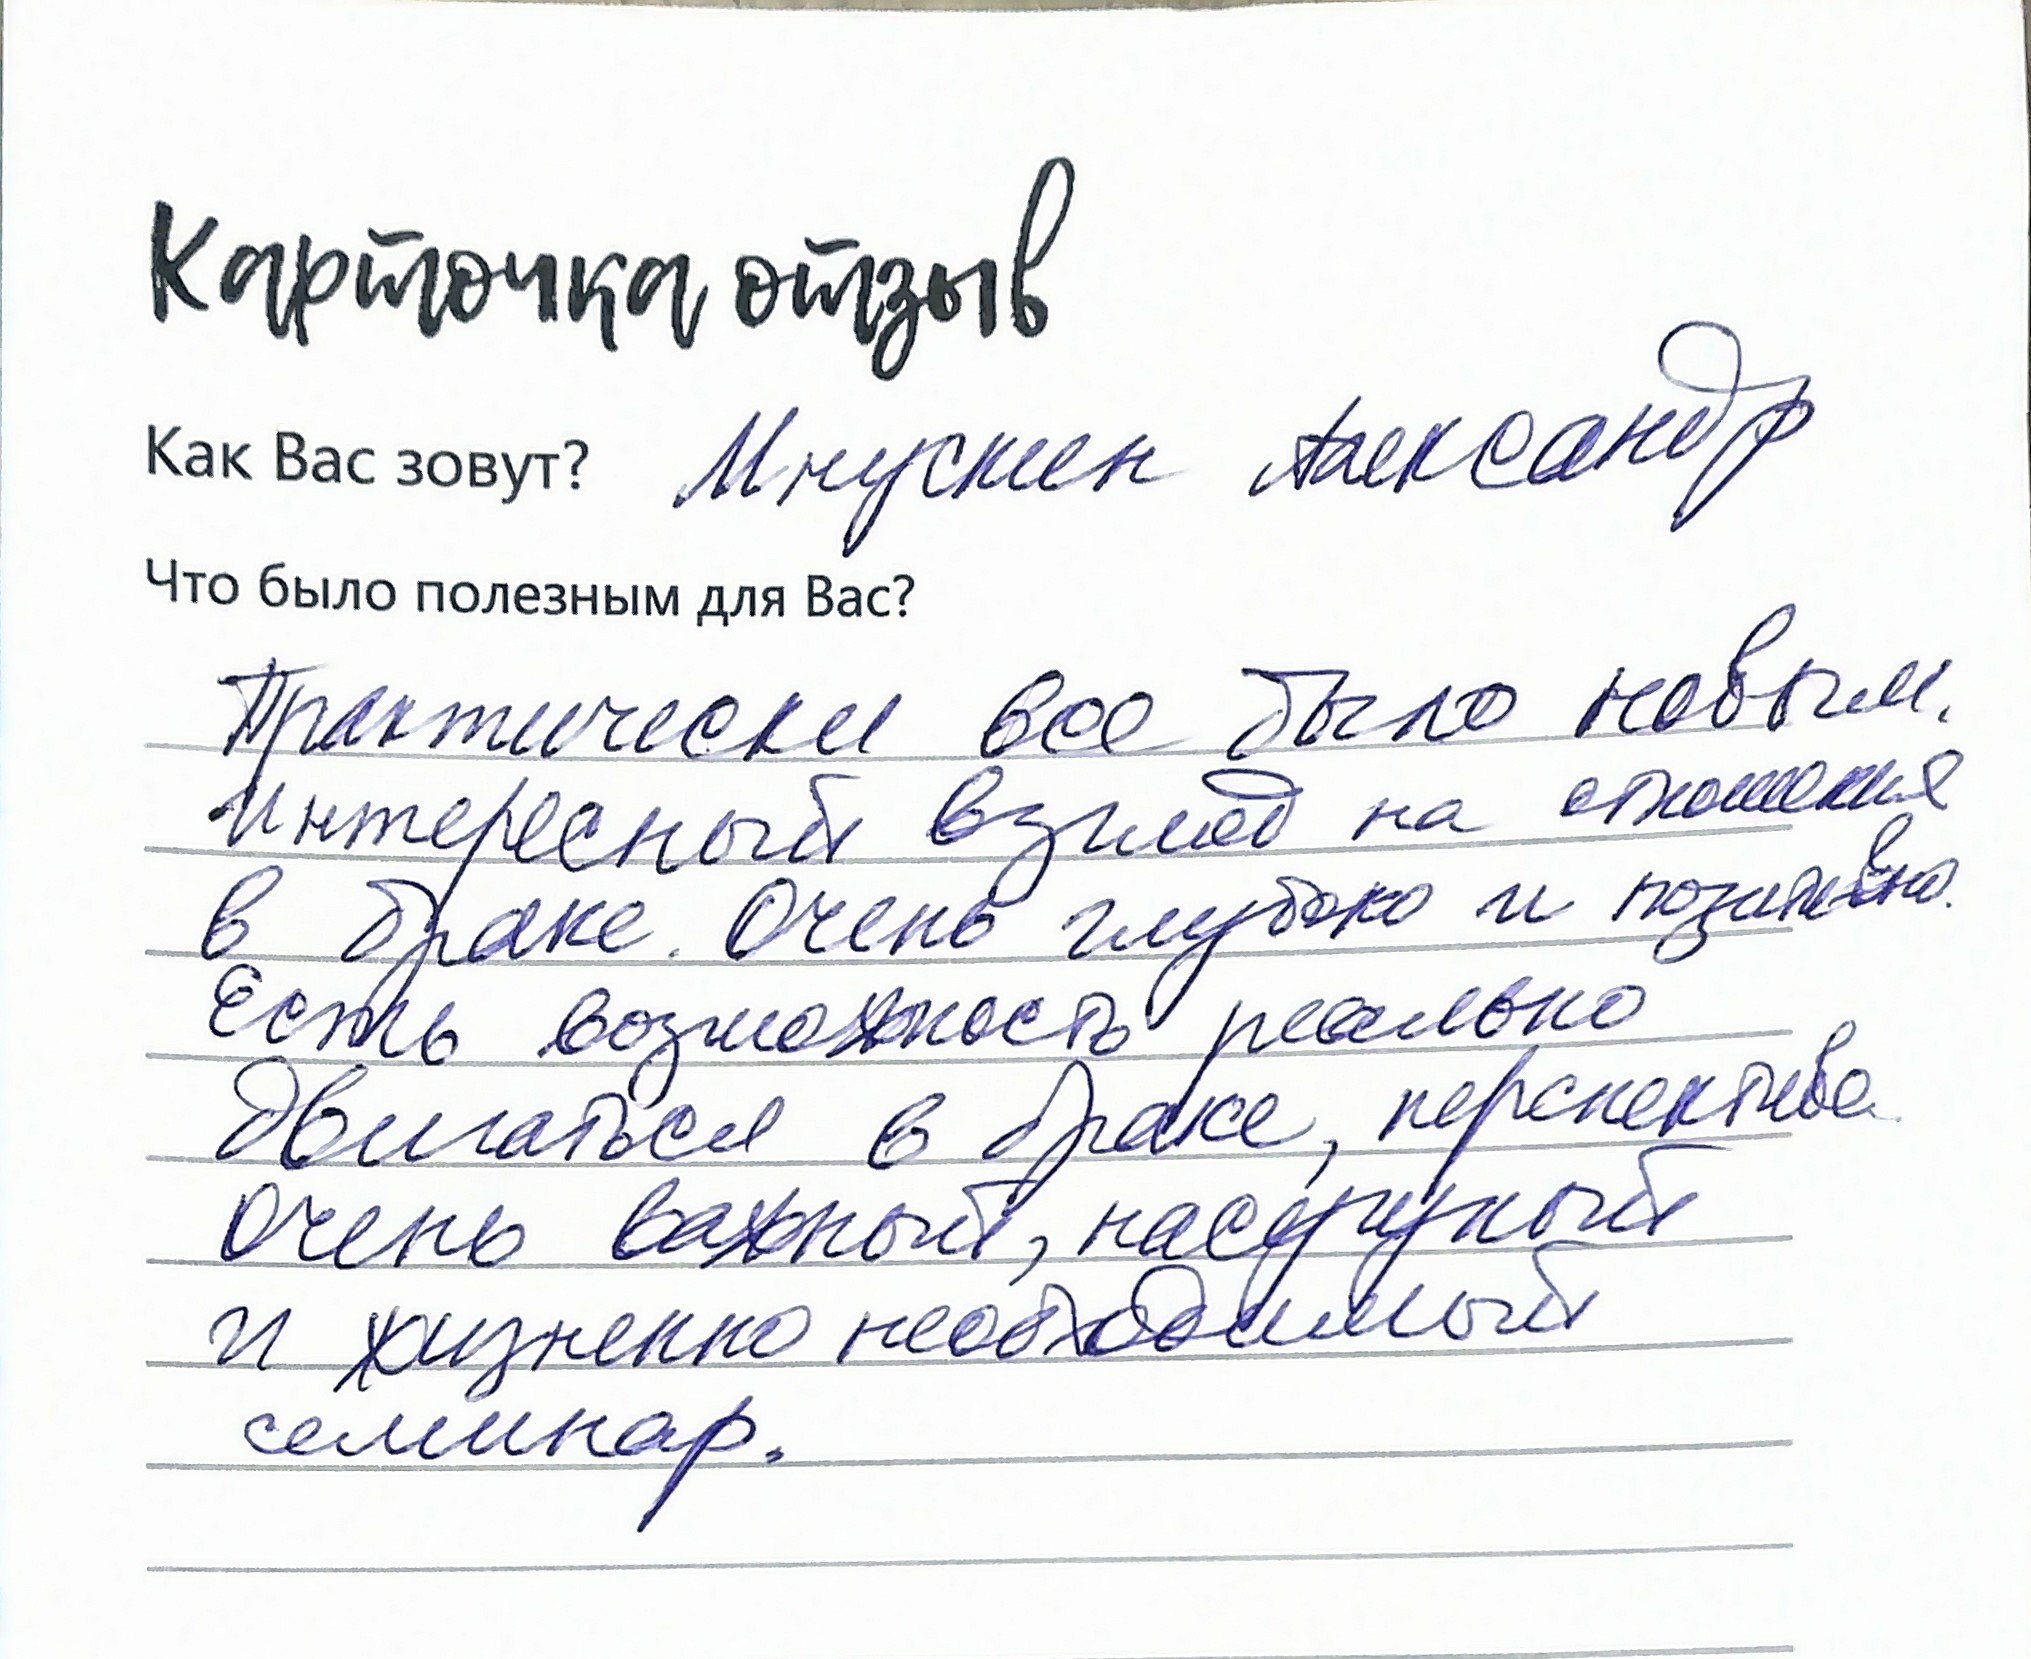 Карточка отзыв
Как Вас зовут? Мнускин Александр
Что было полезным для Вас?
Практически все было новым.
Интересный взгляд на отношения
в браке. Очень глубоко и позитивно.
Есть возможность реально
двигаться в браке, перспектива
Очень важный, насущный
и жизненно необходимый
семинар.